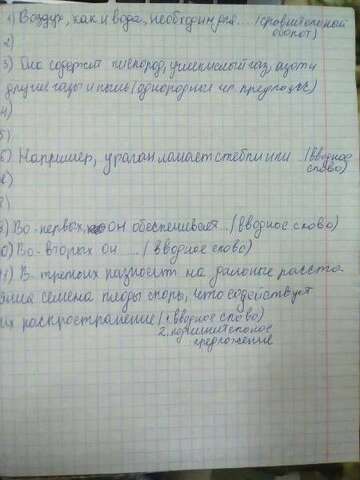 1) Воздух, как и вода, необходим для... (сравнительный
оборот)
2)
3) Она содержит кислород, углекислый газ, азот и
другие газы и пыль (однородные чл. предлож)
4)
5)
6) Например, ураган ломает стебли или ...(вводное
слово)
8) Во-первых, он обеспечивает...(вводное слово)
Во-вторых он .... (вводное слово)
В-третьих разносит на далёкие расстo-
яния семена плоды споры, что содействует
их распространение (1. вводное слово)
2. подчинительное
предложение